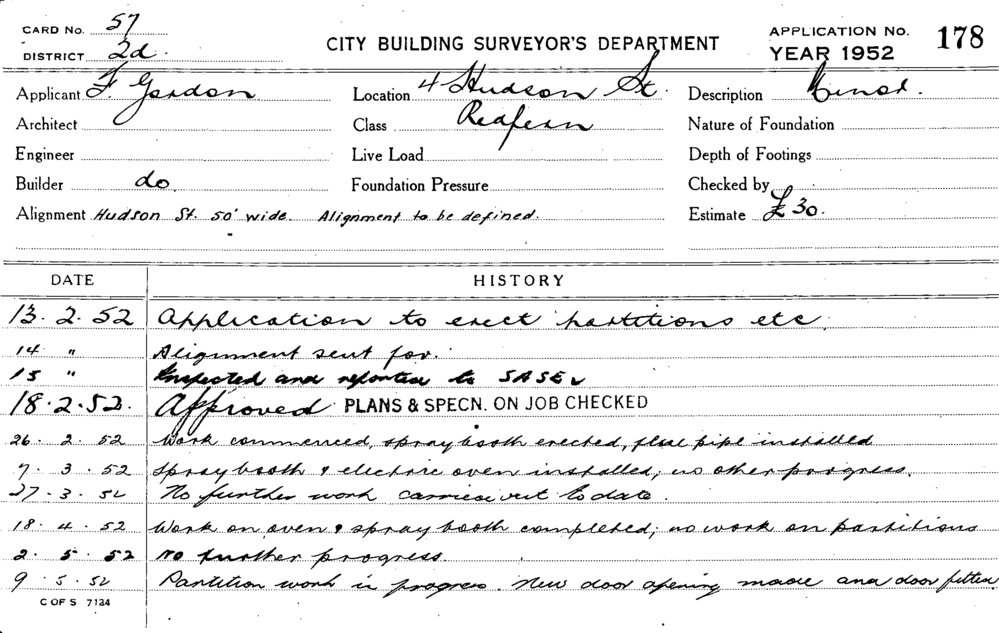 CARD No. 57
DISTRICT 2d.
CITY BUILDING SURVEYOR'S DEPARTMENT
APPLICATION No. 178
YEAR 1952
Applicant F. Gordon Location 4 Hudson St. Description
Architect Class Redfern Nature of Foundation
Engineer Live Load Depth of Footings
Builder do Foundation Pressure Checked by
Alignment Hudson St. 50' wide. Alignment to be defined. Estimate £30.
DATE HISTORY
13.2.52 Application to erect partitions etc.
14 " Alignment sent for.
15 " Inspected and reported to
18.2.52. Approved PLANS & SPECN. ON JOB CHECKED
26.2.52 Work commenced, spray booth erected, flue pipe installed
7.3.52 Spray booth & electric oven installed; no other progress.
27.3.52 No further work carried out to date.
18.4.52 Work on oven & spray booth completed; no work on partitions
2.5.52 No further progress.
9.5.52 Partition work in progress. New door opening made and door fitted.
C OF S 7134